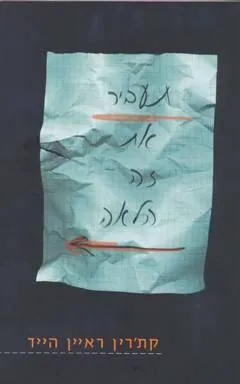 תעביר
את
זה
הלאה
קת'רין ראיין הייד